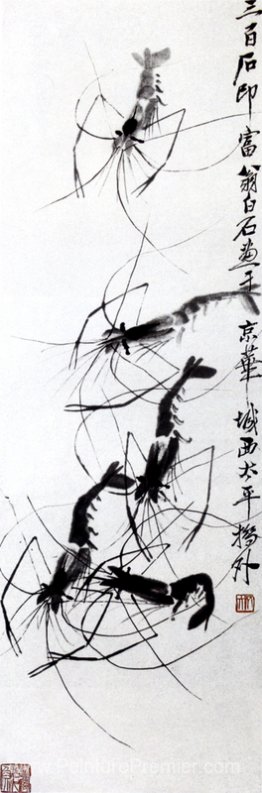 三百石印富翁白石畫于京華城西太平橋外
www.PeinturePremier.com